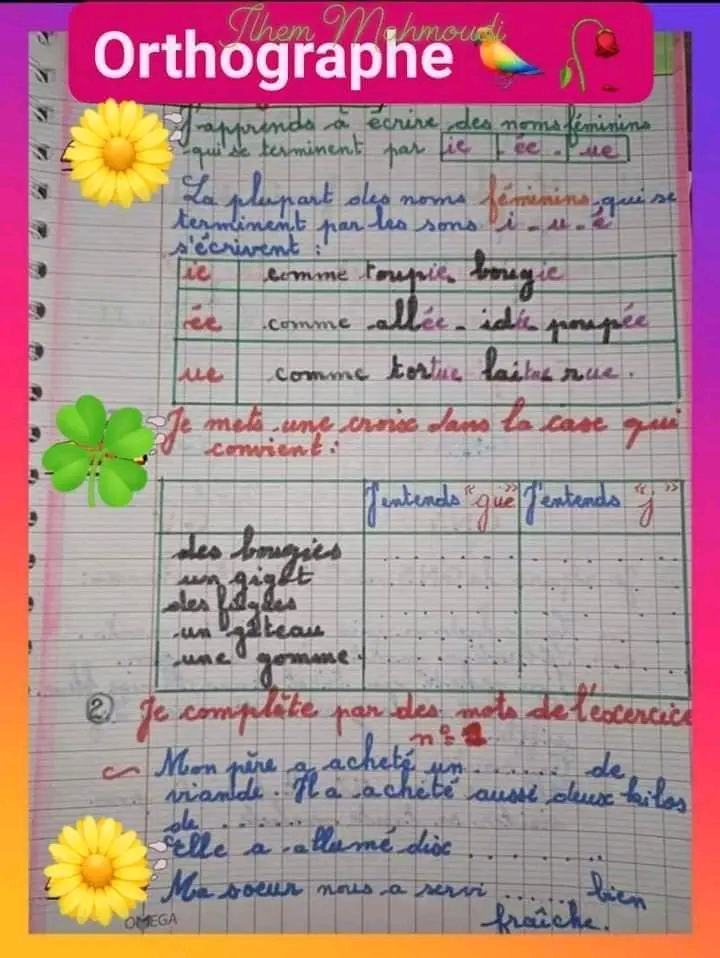 Ilhem Mahmoudi
Orthographe
J'apprends à écrire des noms féminins
qui se terminent par ie ée ue
La plupart des noms féminins qui se
terminent par les sons i - u - é
s'écrivent :
ie comme toupie bougie
ée comme allée - idée poupée
ue comme tortue laitue rue.
Je mets une croix dans la case qui
convient :
J'entends "gue" J'entends "j"
des bougies
un gigot
des
un gâteau
une gomme
2 Je complète par des mots de l'exercice
n° 1
Mon père a acheté un ...... de
viande. Il a acheté aussi deux kilos
de ...........
Elle a allumé dix ...........
Ma soeur nous a servi ...... bien
fraîche.
OMEGA